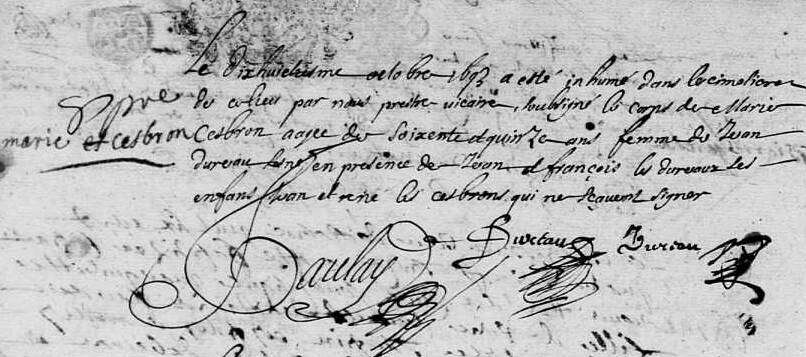 Le dixhuictiesme octobre 1693 a esté inhumé dans le cimetiere
de ceans par nous prestre vicaire soubsigné le corps de Marie
Cesbron aagee de soixente et quinze ans femme de Jean
dureau en presence de Jean et françois les dureaux ses
enfans Jean et rene les cesbrons qui ne sçauent signer
marie Cesbron
Dureau Dureau